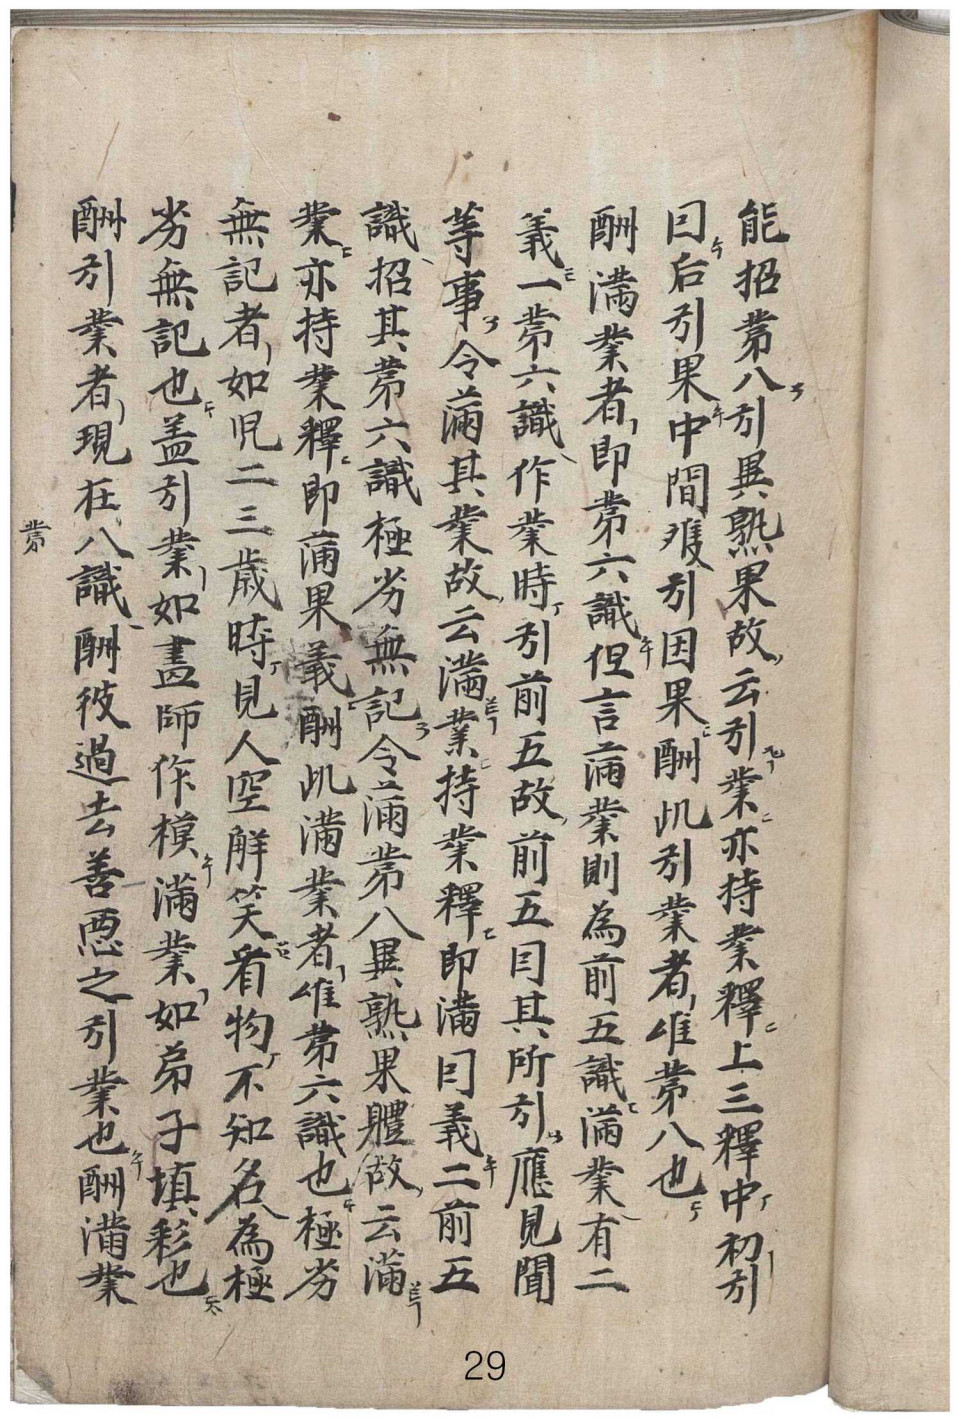 能招苐八引異熟果故云引業亦持業釋上三釋中初引
因后引果中間雙引因果酬此引業者唯苐八也
酬滿業者即苐六識但言滿業則為前五識滿業有二
義一苐六識作業時引前五故前五因其所引應見聞
等事令滿其業故云滿業持業釋即滿因義二前五
識招其苐六識極劣無記令滿苐八異熟果體故云滿
業亦持業釋即滿果義酬此滿業者唯苐六識也極劣
無記者如児二三歲時見人空解笑看物不知名為極
劣無記也盖引業如畫師作模滿業如弟子填彩也
酬引業者現在八識酬彼過去善惡之引業也酬滿業
苐
29